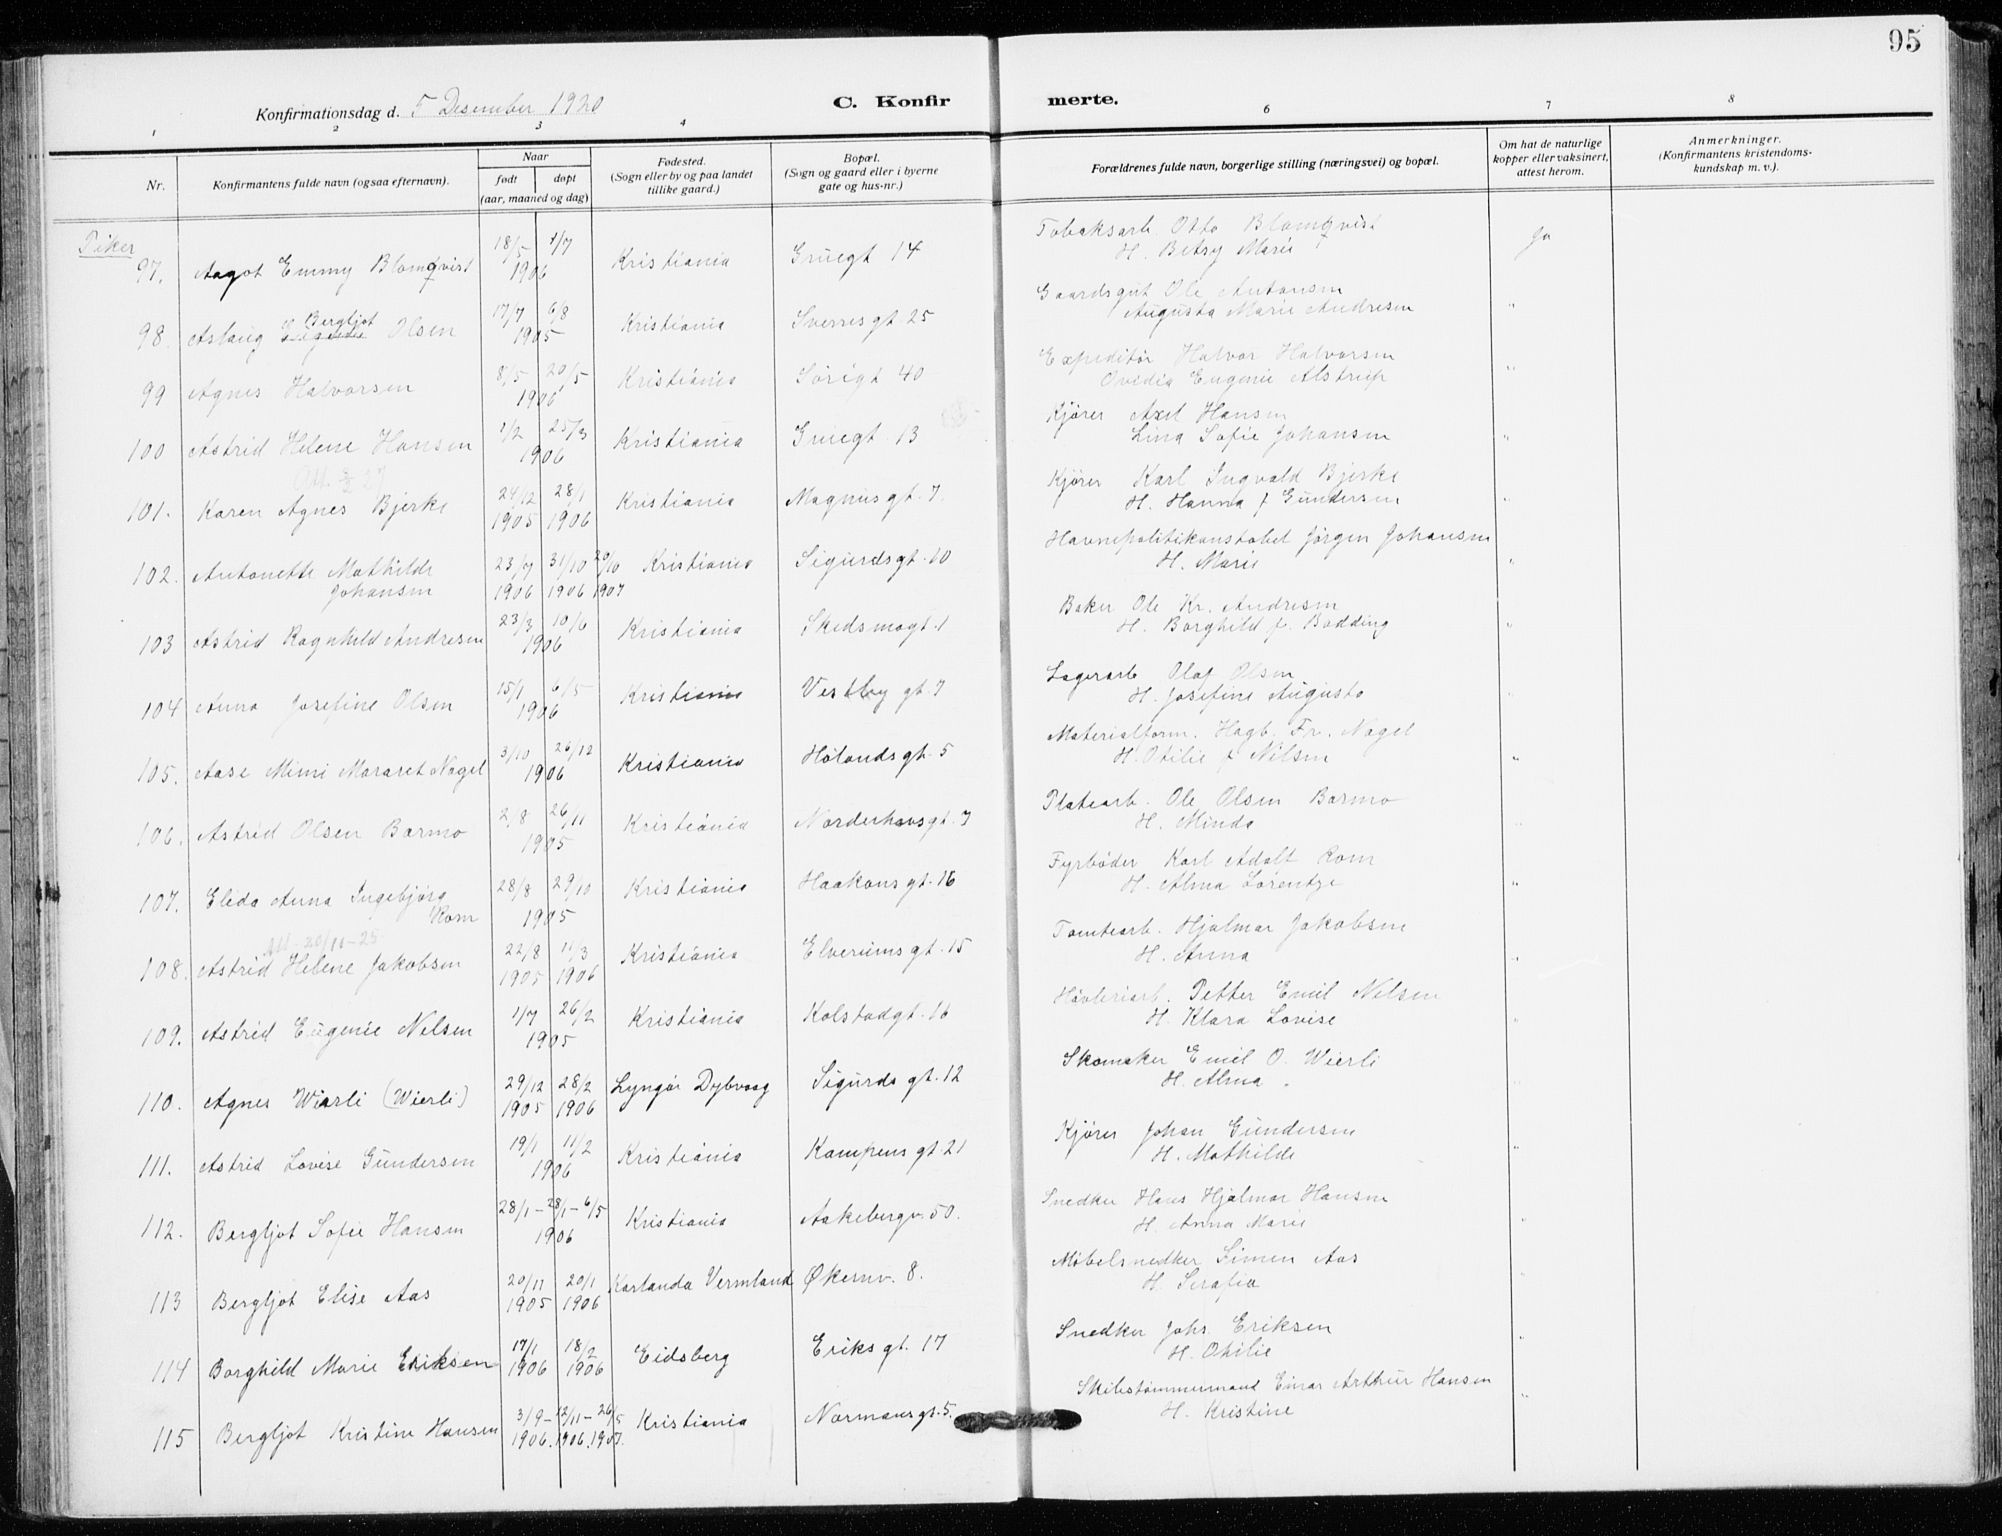 95
Konfirmationsdag d. 5 Desember 1920
C. Konfirmerte.
1 2 3 4 6 7 8
Nr.
Konfirmantens fulde navn (ogsaa efternavn).
Naar
født døpt
(aar, maaned og dag)
Fødested.
(Sogn eller by og paa landet
tillike gaard.)
Bopæl.
(Sogn og gaard eller i byerne
gate og hus-nr.)
Forældrenes fulde navn, borgerlige stilling (næringsvei) og bopæl.
Om hat de naturlige
kopper eller vaksinert,
attest herom.
Anmerkninger.
(Konfirmantens kristendoms-
kundskap m. v.).
Piker
97. Aagot Emmy Blomqvist 18/5 1/7 1906 Kristiania Gruegt 14 Tobaksarb Otto Blomqvist
H. Betsy Marie Ja
98. Aslaug Bergljot Olsen 17/7 6/8 1905 Kristiania Sverresgt 25 Gaardsgut Ole Antonsen
Augusta Marie Andresen "
99 Agnes Halvorsen 8/5 20/5 1906 Kristiania Sörigt 40 Expeditör Halvor Halvorsen
Ovidia Eugenie Alstrup "
100 Astrid Helene Hansen 1/2 25/3 1906 Kristiania Gruegt 13 Kjører Axel Hansen
Lina Sofie Johansen "
Att. 2/2 27
101. Karen Agnes Bjerke 24/12 1905 28/1 1906 Kristiania Magnusgt. 7. Kjører Karl Ingvald Bjerke
H. Hanna f Gundersen "
102. Antonette Mathilde
Johansen 23/7 1906 31/10 1906 20/10 1907 Kristiania Sigurdsgt. 10 Havnepolitikonstabel Jørgen Johansen
H. Marie "
103 Astrid Ragnhild Andresen 23/3 10/6 1906 Kristiania Skedsmogt. 1 Baker Ole Kr. Andresen
H. Borghild f. Bødding "
104 Anna Josefine Olsen 15/1 6/5 1906 Kristiania Vestby gt. 7 Lagerarb Olaf Olsen
H. Josefine Augusta "
105. Aase Mimi Mararet Nagel 3/10 26/12 1906 Kristiania Hølandsgt. 5 Materialform. Hagb. Fr. Nagel
H. Otilie f Nilsen "
106. Astrid Olsen Barmo 2/8 26/11 1905 Kristiania Norderhovsgt. 7 Platearb. Ole Olsen Barmo
H. Minda "
107. Elida Anna Ingebjørg
Rom 28/8 29/10 1905 Kristiania Haakonsgt. 16 Fyrbøder Karl Adolf Rom
H. Alma Lorentze "
Att. 20/11-25
108. Astrid Helene Jakobsen 22/8 1905 11/3 1906 Kristiania Elverumsgt. 15 Tomtearb. Hjalmar Jakobsen
H. Anna "
109. Astrid Eugenie Nilsen 1/7 26/2 1905 Kristiania Kolstadgt. 16 Høvleriarb. Petter Emil Nilsen
H. Klara Lovise "
110. Agnes Wiarli (Wierli) 29/12 1905 28/2 1906 Lyngör Dybvaag Sigurds gt. 12 Skomaker Emil O. Wierli
H. Alma "
111. Astrid Lovise Gundersen 19/1 11/2 1906 Kristiania Kampens gt. 21 Kjører Johan Gundersen
H. Mathilde "
112. Bergljot Sofie Hansen 28/1 - 28/1 - 6/5 1906 Kristiania Aakebergv. 50. Snedker Hans Hjalmar Hansen
H. Anna Marie "
113 Bergljot Elise Aas 20/11 1905 20/1 1906 Karlanda Vermland Økernv. 8. Møbelsnedker Simen Aas
H. Serafia "
114 Borghild Marie Eriksen 17/1 1906 18/2 1906 Eidsberg Eriks gt. 17 Snedker Johs. Eriksen
H. Othilie "
115 Bergljot Kristine Hansen 3/9 - 12/11 - 26/5 1906. 1906. 1907. Kristiania Normansgt. 5. Skibstømmermand Einar Arthur Hansen
H. Kristine "